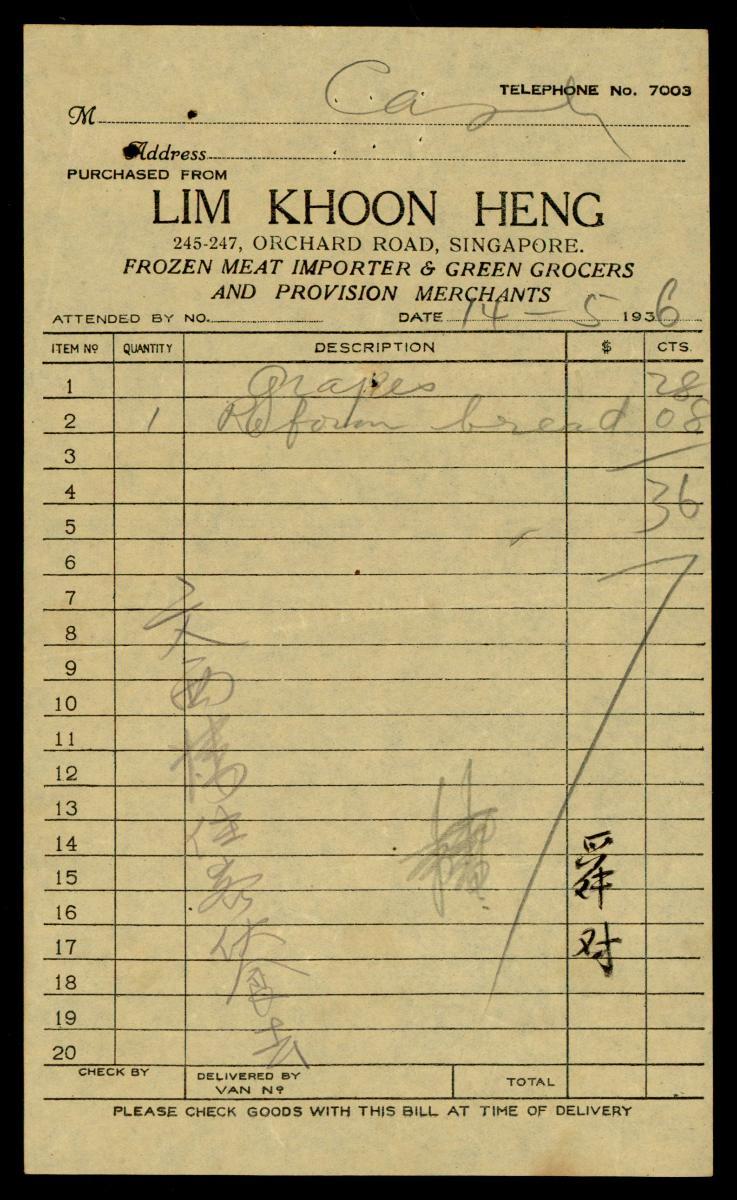 TELEPHONE No. 7003
M Cash
Address
PURCHASED FROM
LIM KHOON HENG
245-247, ORCHARD ROAD, SINGAPORE.
FROZEN MEAT IMPORTER & GREEN GROCERS
AND PROVISION MERCHANTS
ATTENDED BY NO. DATE 14-5 1936
ITEM Nº QUANTITY DESCRIPTION $ CTS.
1 Grapes 28
2 1 Reform bread 08
3
4 36
5
6
7
8
9
10
11
12
13
14
15
16
17 对
18
19
20
CHECK BY DELIVERED BY VAN Nº TOTAL
PLEASE CHECK GOODS WITH THIS BILL AT TIME OF DELIVERY